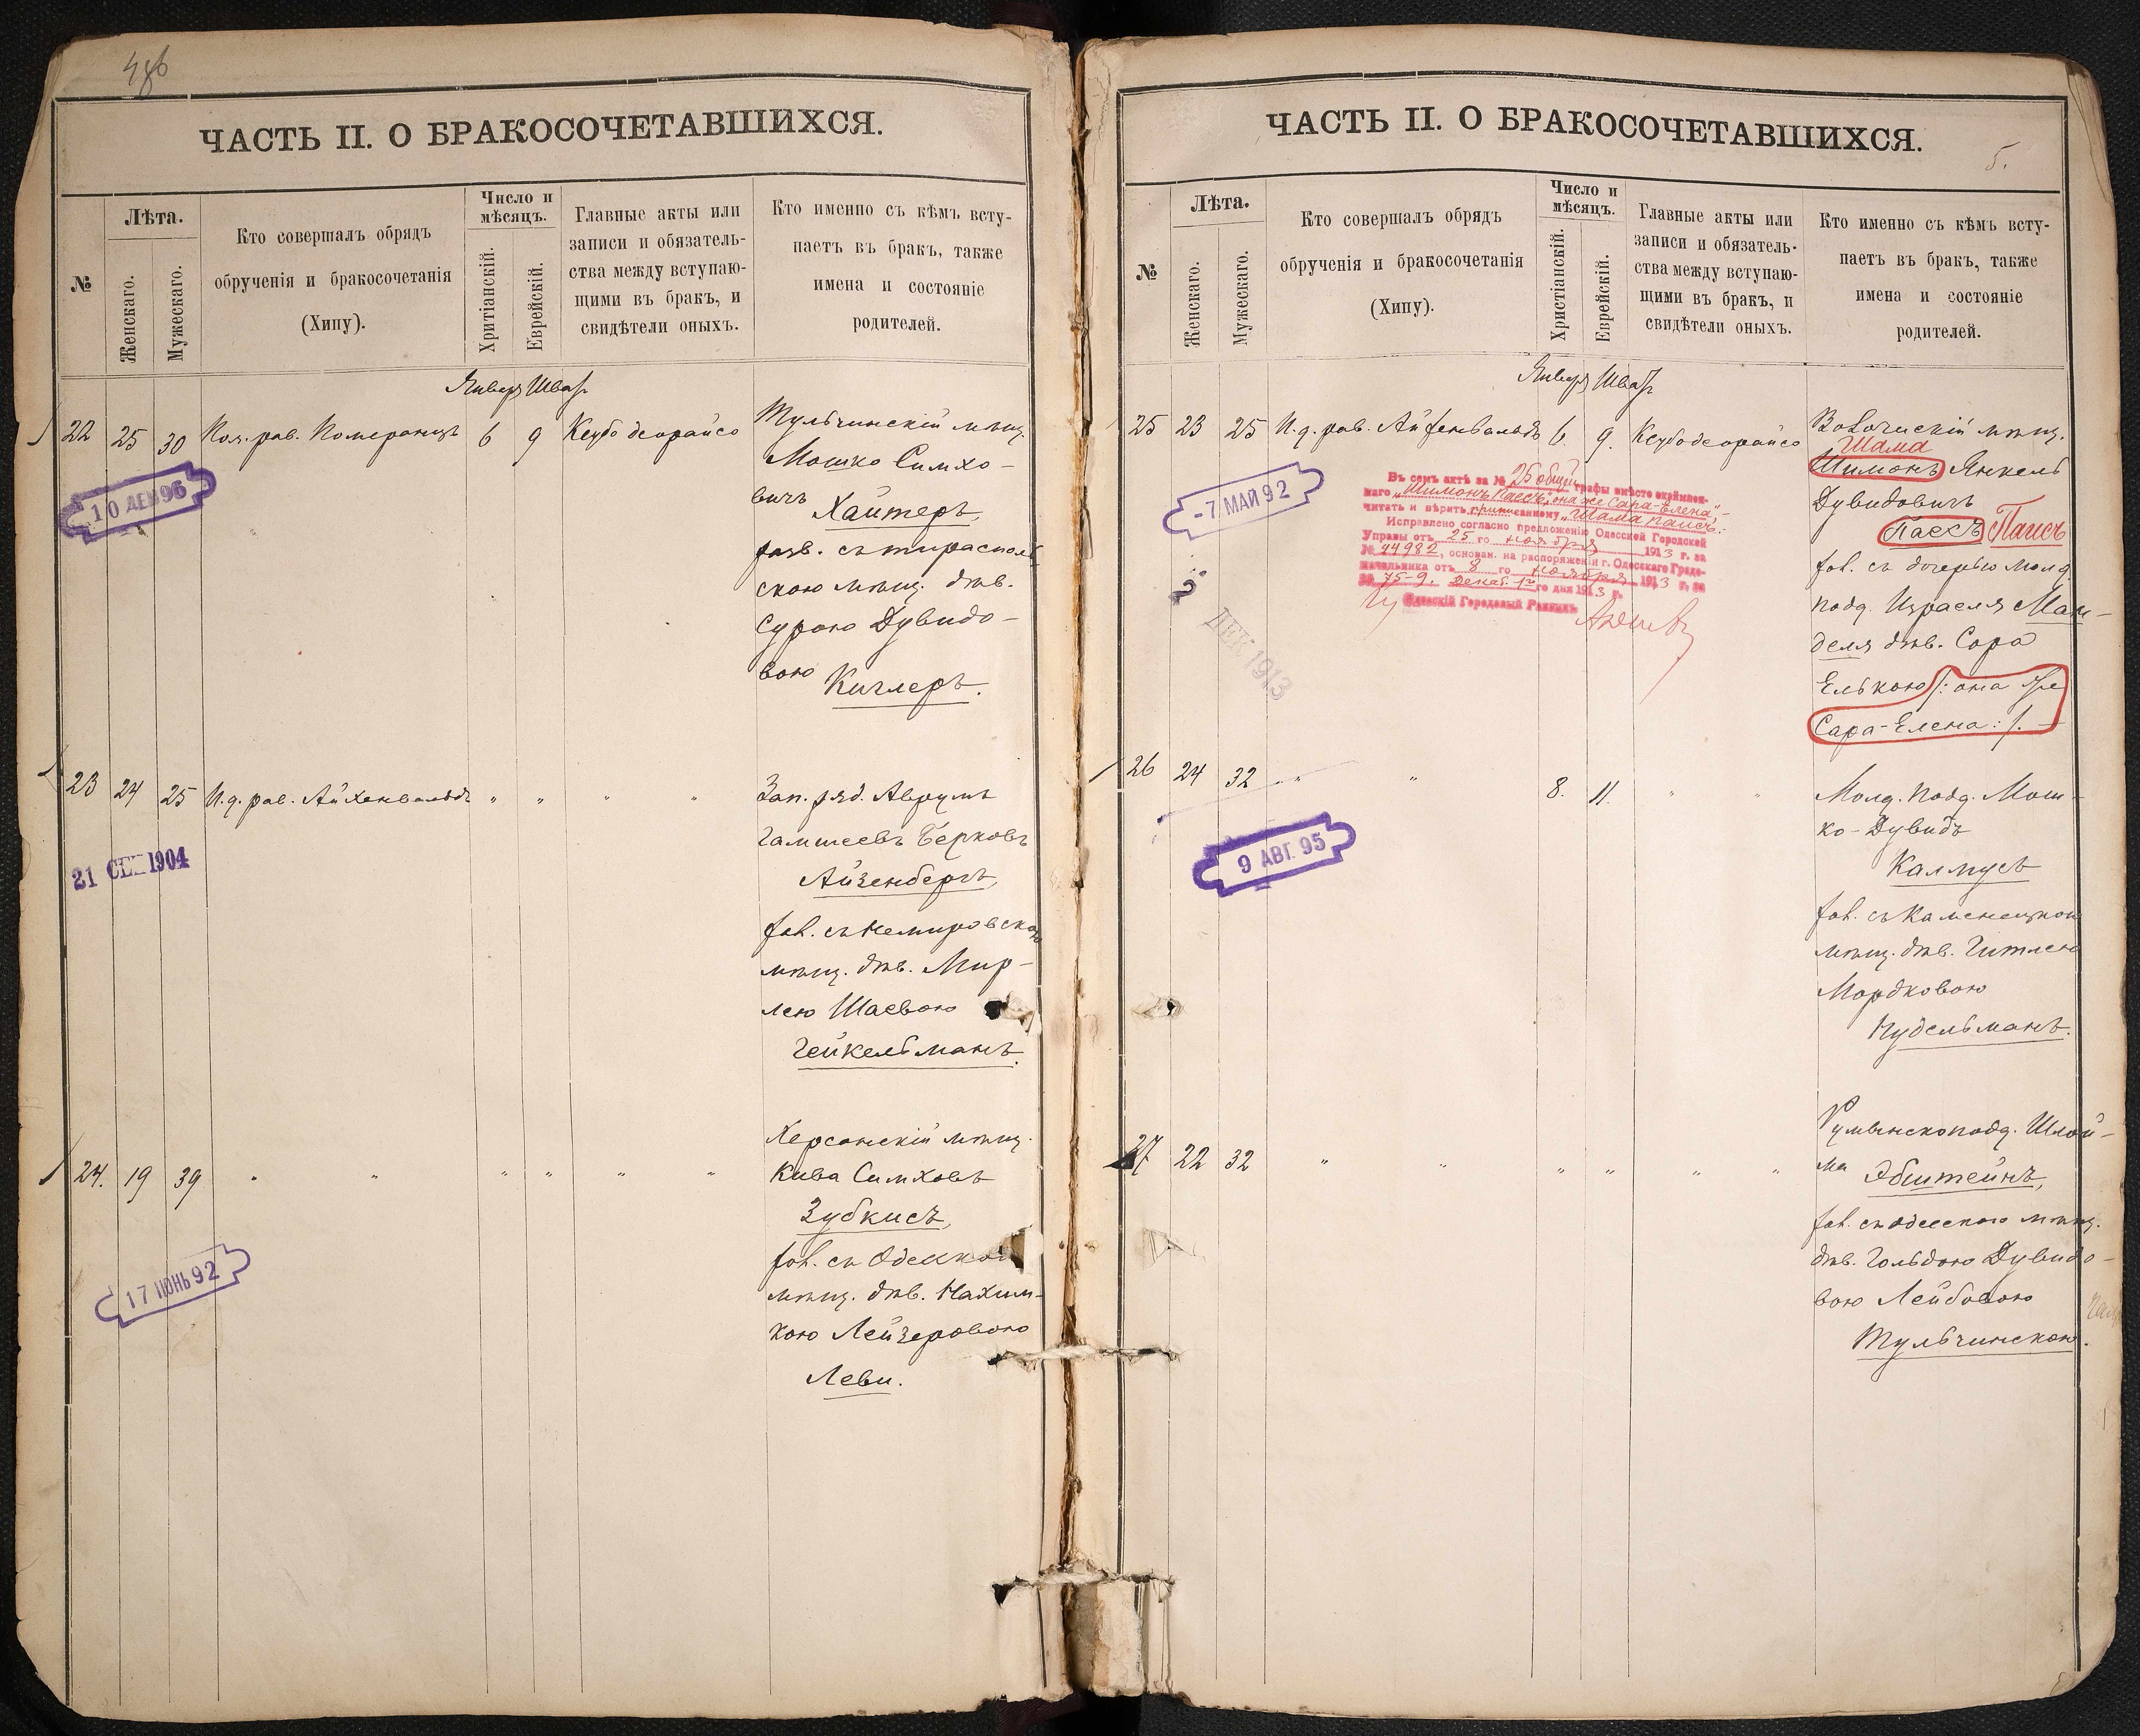 486
ЧАСТЬ II. О БРАКОСОЧЕТАВШИХСЯ.
№
Лѣта.
Женскаго.
Мужескаго.
Кто совершалъ обрядъ
обрученія и бракосочетанія
(Хипу).
Число и
мѣсяцъ.
Хритіанскій.
Еврейскій.
Главные акты или
записи и обязатель-
ства между вступаю-
щими въ бракъ, и
свидѣтели оныхъ.
Кто именно съ кѣмъ всту-
паетъ въ бракъ, также
имена и состояніе
родителей.
Январь Шватъ
22 25 30 Пом. рав. Померанцъ 6 9 Ксубо деорайсо
Тульчинскій мѣщ.
Мошко Симхо-
вичъ
Хайтеръ,
разв. съ тирасполь
скою мѣщ. дѣв.
Сурою Дувидо-
вою
Кичлеръ.
10 ДЕК 96
23 24 25 И. д. рав. Айхенвальдъ " " " "
Зап. ряд. Аврумъ
Гамшеевъ Берковъ
Айзенбергъ,
хол. съ Немировскою
мѣщ. дѣв. Мир-
лею Шаевою
Гейкельманъ.
21 СЕН 1904
24. 19 39 " " " " " "
Херсонскій мѣщ.
Кива Симховъ
Зубкисъ,
хол. съ Одесскою
мѣщ. дѣв. Нахим-
кою Лейзеровою
Леви.
17 ІЮНЬ 92
ЧАСТЬ II. О БРАКОСОЧЕТАВШИХСЯ.
5.
№
Лѣта.
Женскаго.
Мужескаго.
Кто совершалъ обрядъ
обрученія и бракосочетанія
(Хипу).
Число и
мѣсяцъ.
Христіанскій.
Еврейскій.
Главные акты или
записи и обязатель-
ства между вступаю-
щими въ бракъ, и
свидѣтели оныхъ.
Кто именно съ кѣмъ всту-
паетъ въ бракъ, также
имена и состояніе
родителей.
Январь Шватъ
25 23 25 И. д. рав. Айхенвальдъ 6. 9. Ксубо деорайсо
Волочискій мѣщ.
Шама
Шимонъ Янкель
Дувидовичъ
Паекъ Паисъ
хол. съ дочерью молд.
подд. Израеля Ман-
деля дѣв. Сора
Елькою /: она же
Сара-Елена :/. —
-7 МАЙ 92
Въ семъ актѣ за № 25 общей графы вмѣсто
"Шимонъ Паекъ", "она же Сара-Елена" -
читать и вѣрить "Шама Паисъ".
Исправлено согласно предложенію Одесской Городской
Управы отъ 25 го ноября 1913 г. за
№ 44982, основан. на распоряженіи г. Одесскаго Градо-
начальника отъ 8 го ноября 1913 г. за
№ 75-9. Декаб. 1 го дня 1913 г.
Одесскій Городовый Раввинъ
ДЕК 1913
26 24 32 " " 8. 11. " "
Молд. подд. Мош-
ко-Дувидъ
Калмусъ
хол. съ Каменецкою
мѣщ. дѣв. Гитлею
Мордковою
Нудельманъ.
9 АВГ. 95
27 22 32 " " " " " "
Румынскоподд. Шлой-
ма
Эбштейнъ,
хол. съ одесскою мѣщ.
дѣв. Гольдою Дувидо-
вою Лейбовою
Тульчинскою.